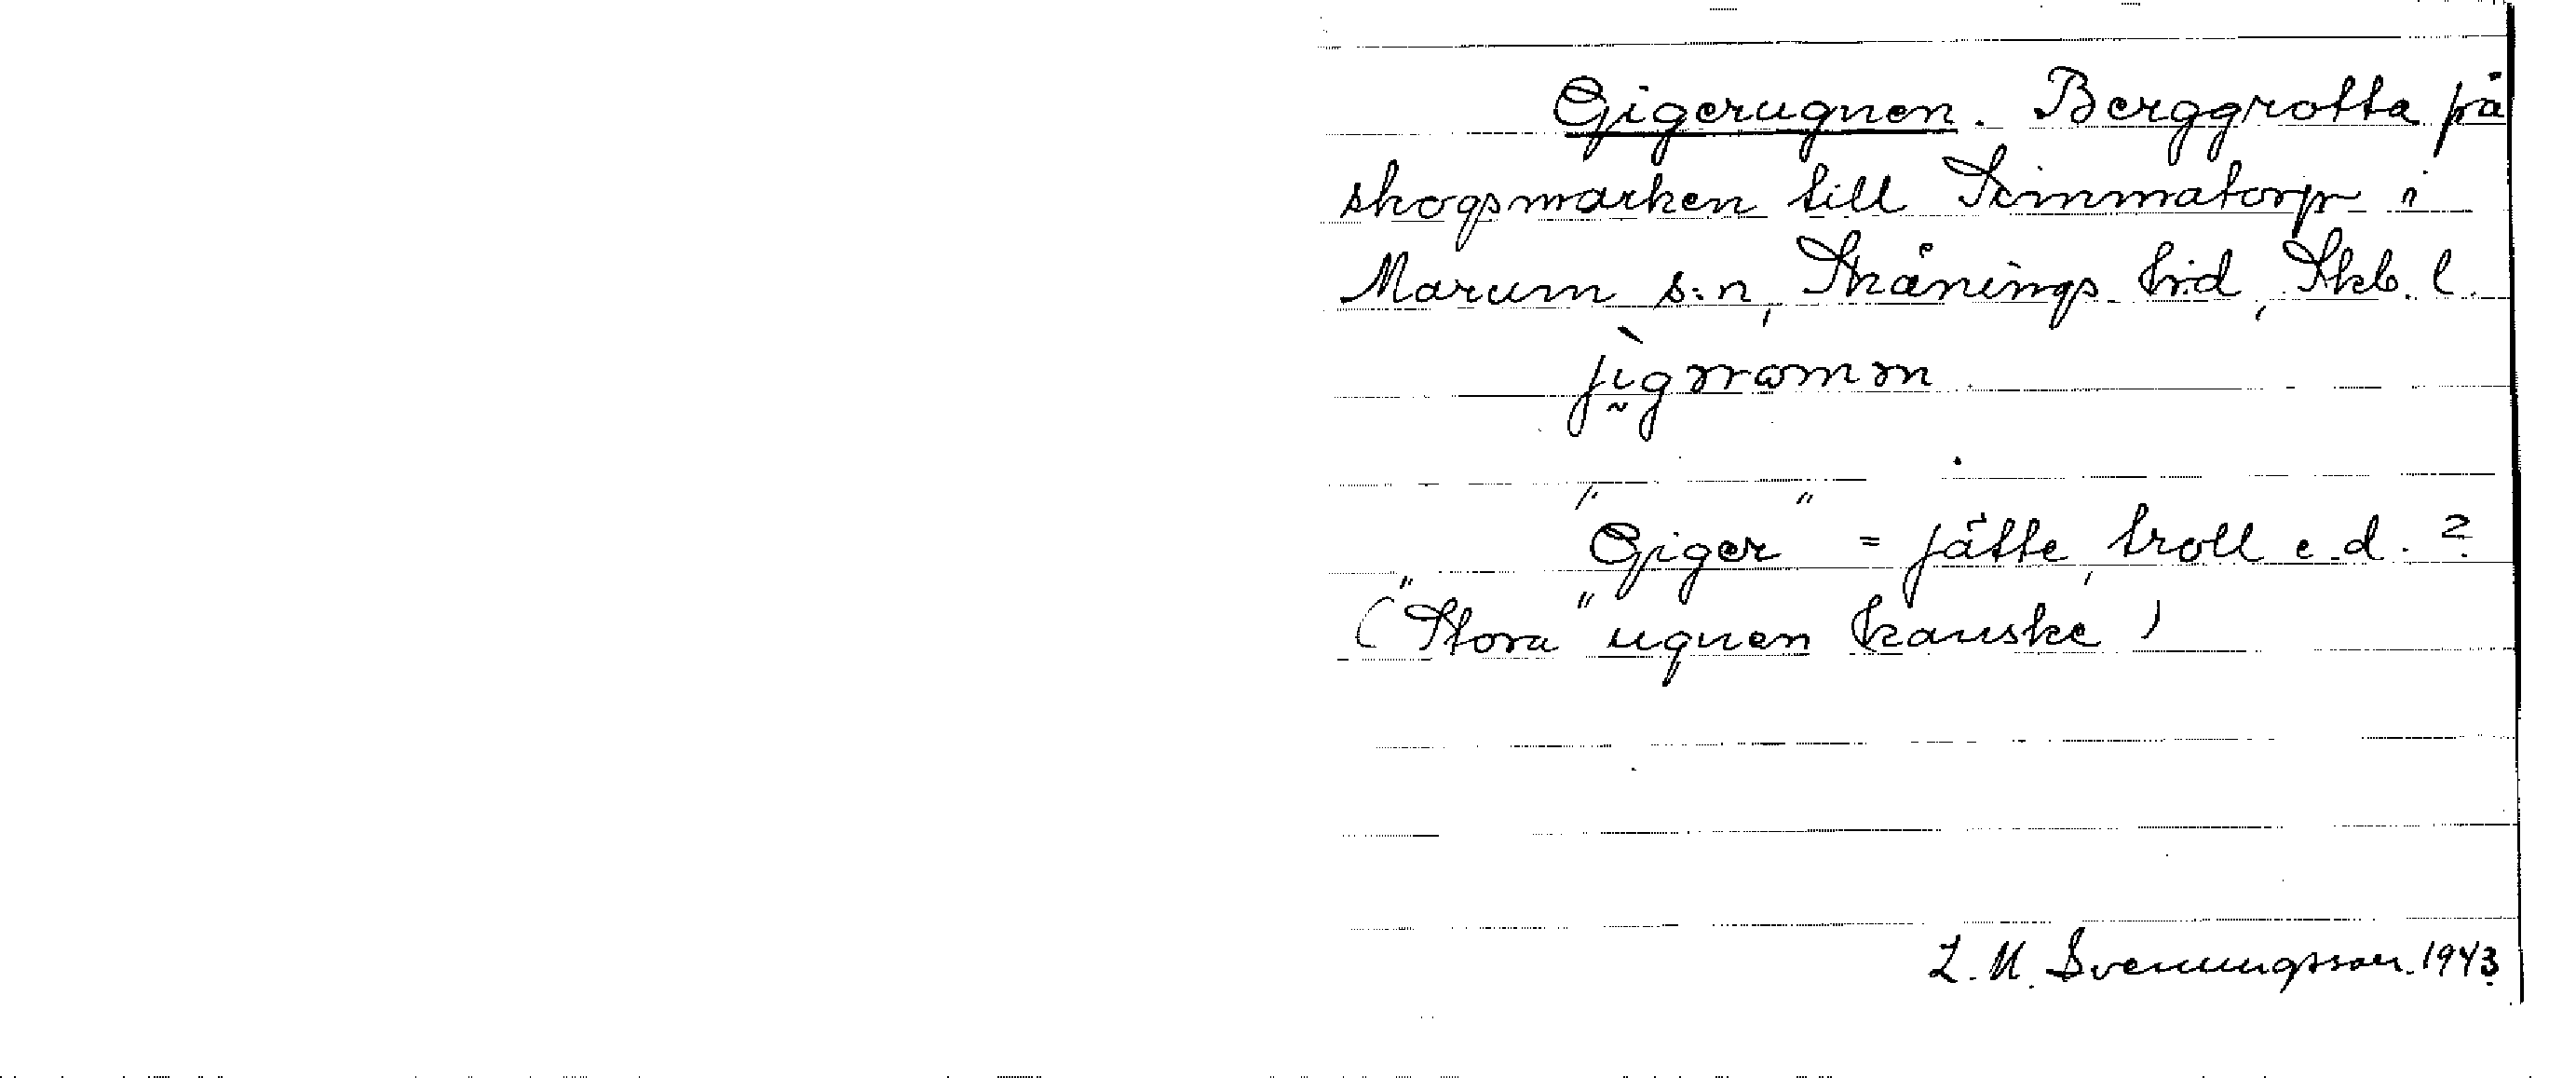 Gigerugnen. Berggrotta på
skogsmarken till Simmatorp i
Marum s:n, Skånings h:d, Skb. l.
"Giger" = jätte, troll e. d. ?
("Stora" ugnen kanske)
L. M. Svenungsson. 1943